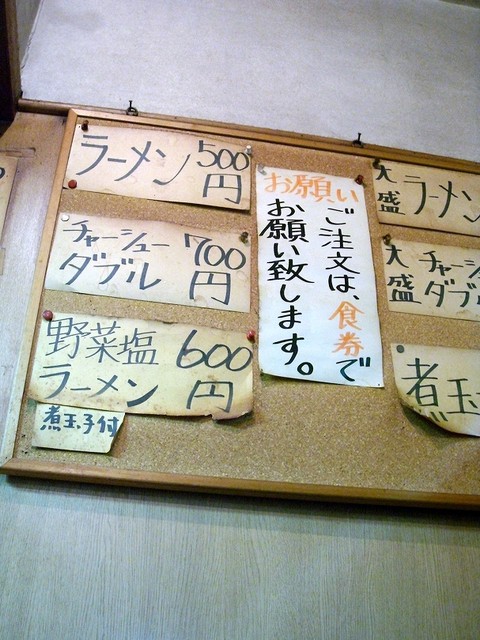 ラーメン 500円
チャーシューダブル 700円
野菜塩ラーメン 600円
煮玉子付
お願い
ご注文は、食券で
お願い致します。
大盛 ラーメン
大盛 チャーシュー
ダブル
煮玉